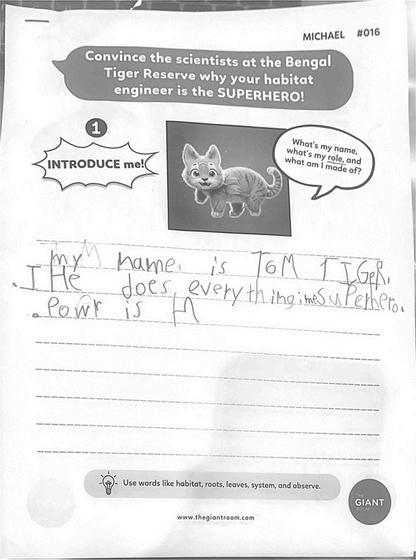 MICHAEL #016
Convince the scientists at the Bengal
Tiger Reserve why your habitat
engineer is the SUPERHERO!
1
INTRODUCE me!
What's my name,
what's my role, and
what am I made of?
my name. is ToM TIGeR.
.I He does everything
superhero.
.Powr is
Use words like habitat, roots, leaves, system, and observe.
THE
GIANT
ROOM
www.thegiantroom.com